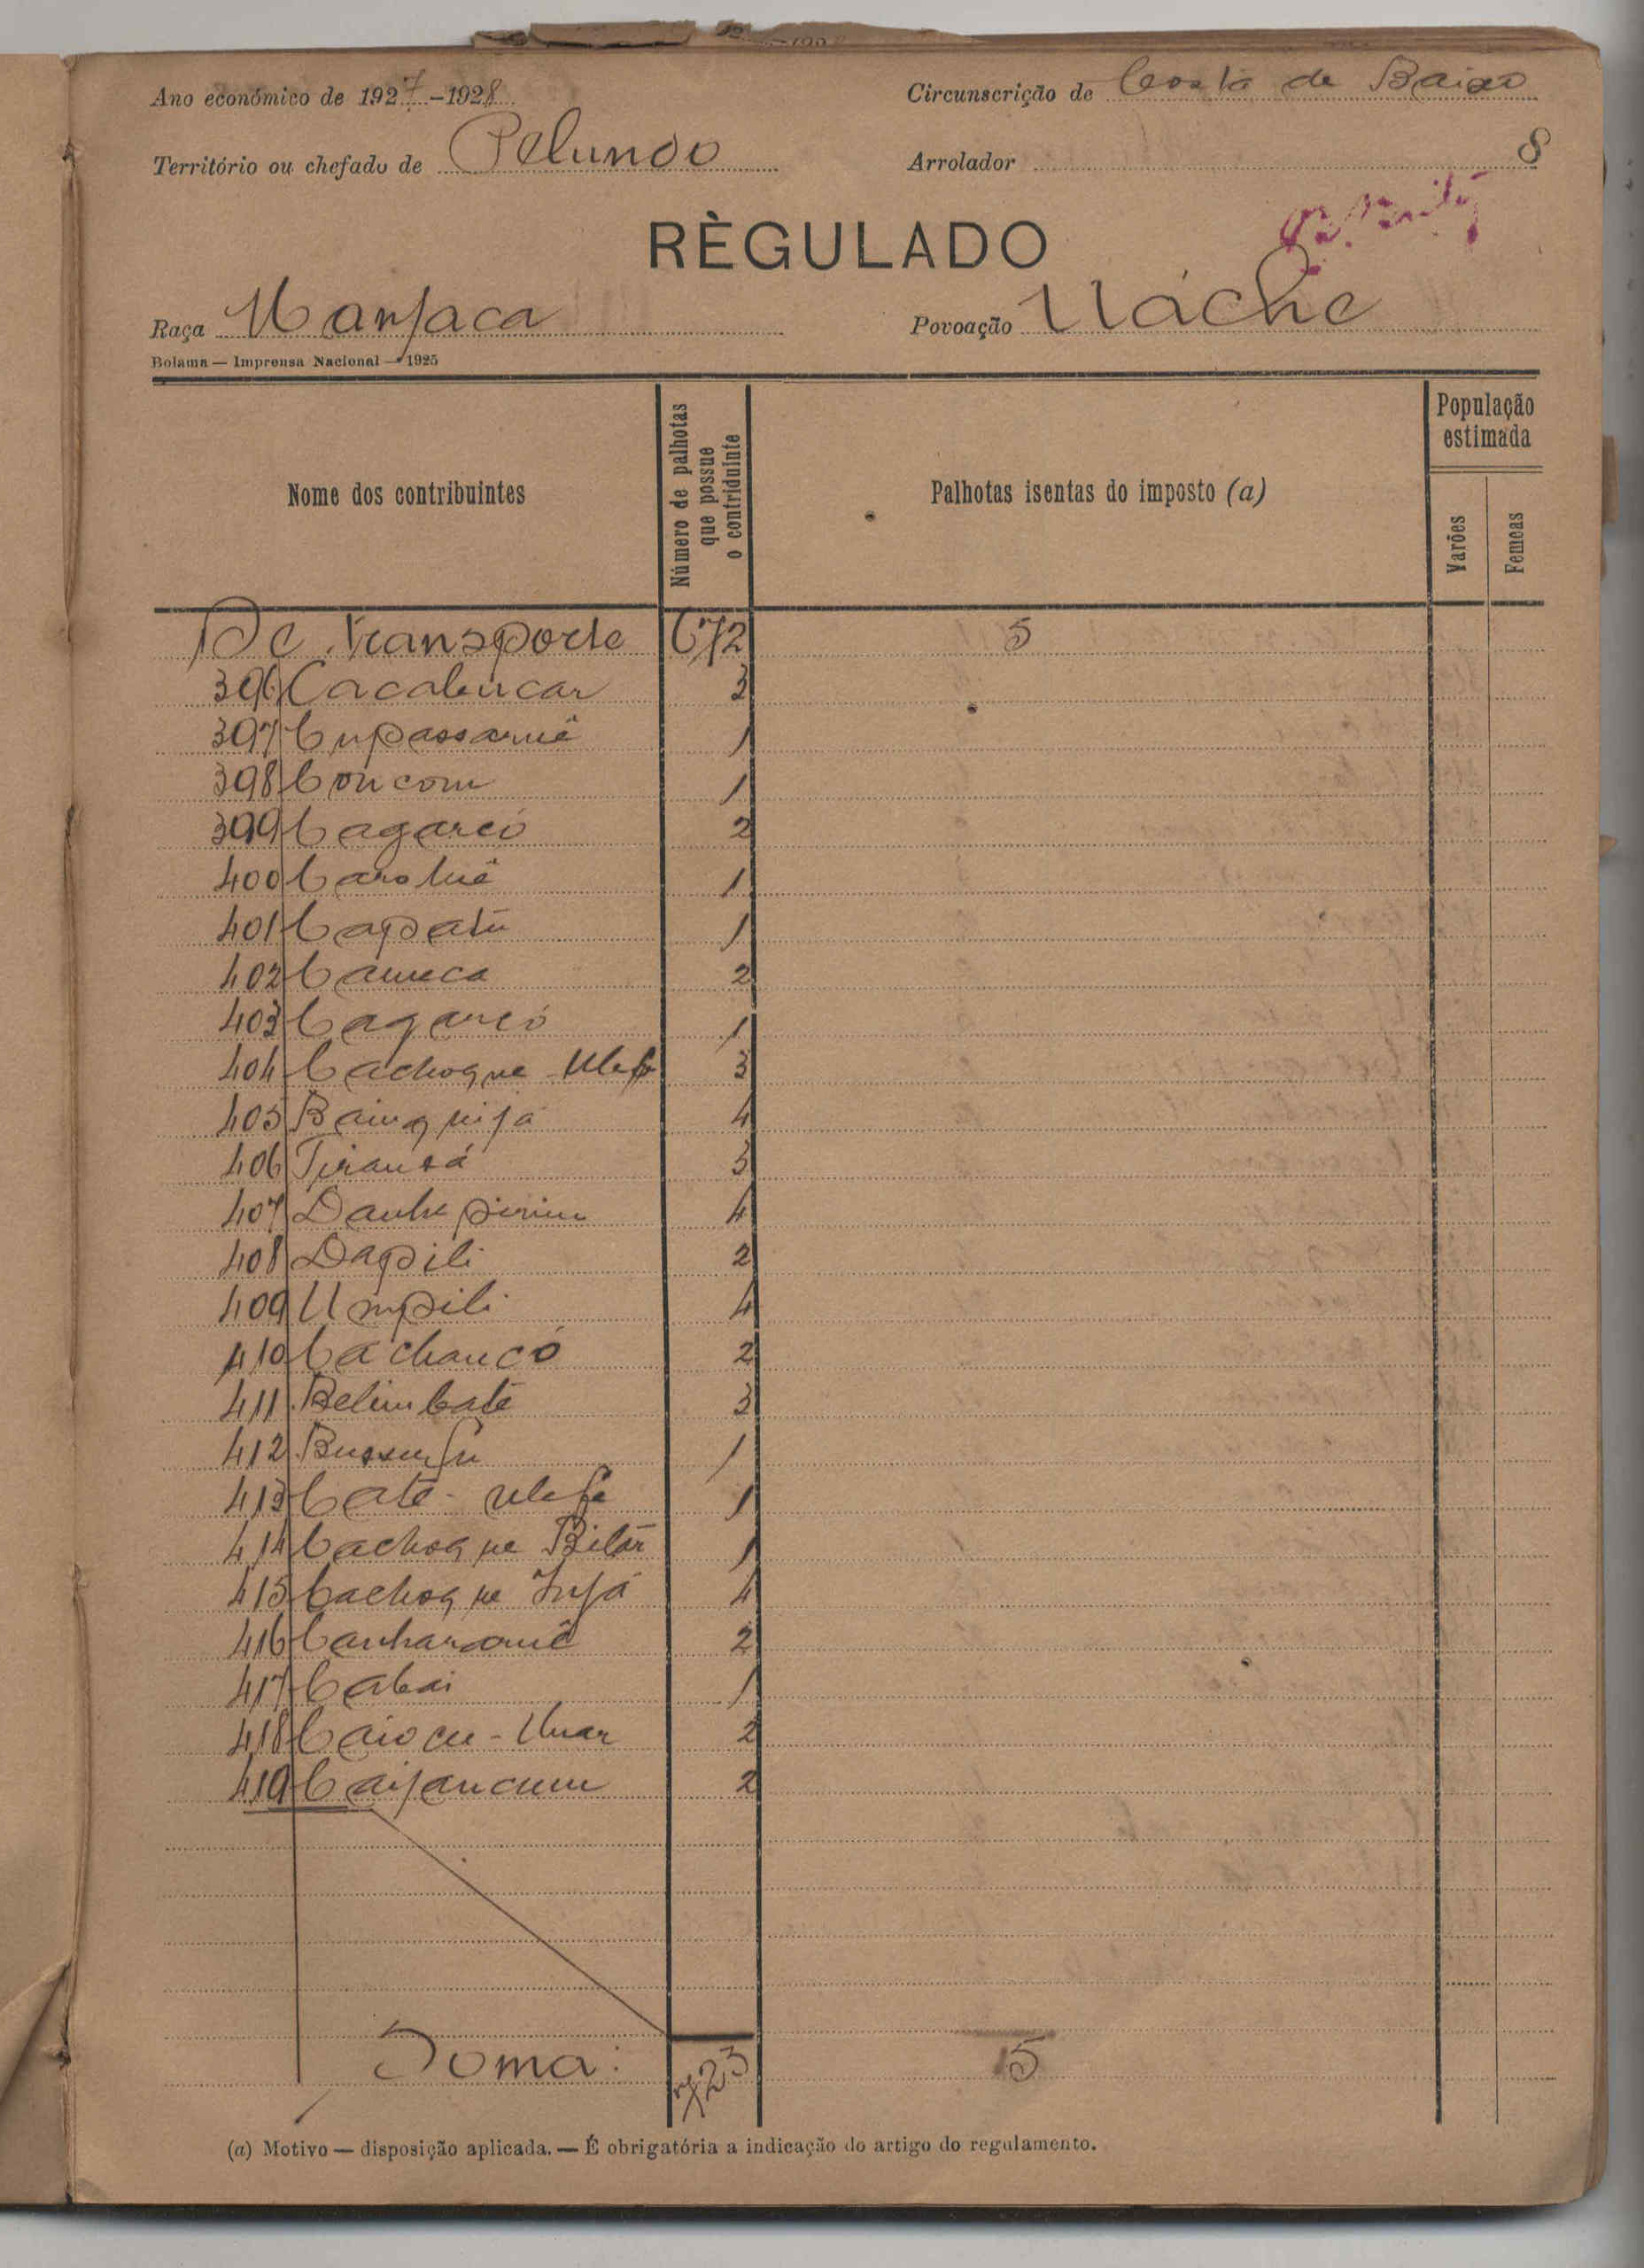 Ano económico de 1927-1928
Circunscrição de Costa de Baixo
Território ou chefado de Pelundo
Arrolador
8
RÈGULADO
Raça Manjaca
Povoação Uáche
Bolama — Imprensa Nacional — 1925
Nome dos contribuintes
Número de palhotas que possue o contriduinte
Palhotas isentas do imposto (a)
População estimada
Varões
Femeas
De transporte 672 5
396 Cacabucar 3
397 Cupassamê 1
398 Concom 1
399 Cagareó 2
400 1
401 Capatu 1
402 Cameca 2
403 Cagareó 1
404 Cachoque Ulefe 3
405 Bainquijá 4
406 3
407 4
408 Dapili 2
409 Umpili 4
410 Cachancó 2
411 Belimbate 3
412 1
413 Caté - Ulefe 1
414 Cachoque Bilar 1
415 Cachoque Injá 4
416 2
417 Cabai 1
418 Caiocu - Unar 2
419 Caijancum 2
Soma: 723 5
(a) Motivo — disposição aplicada. — É obrigatória a indicação do artigo do regulamento.